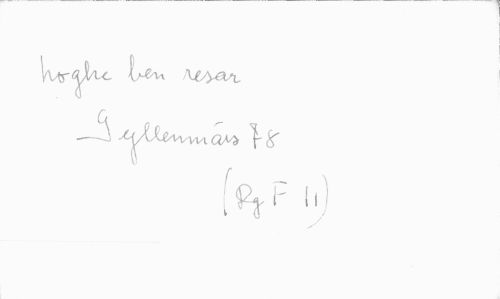 hoghe ben resar
Gyllenmärs 78
(Rg F 11)